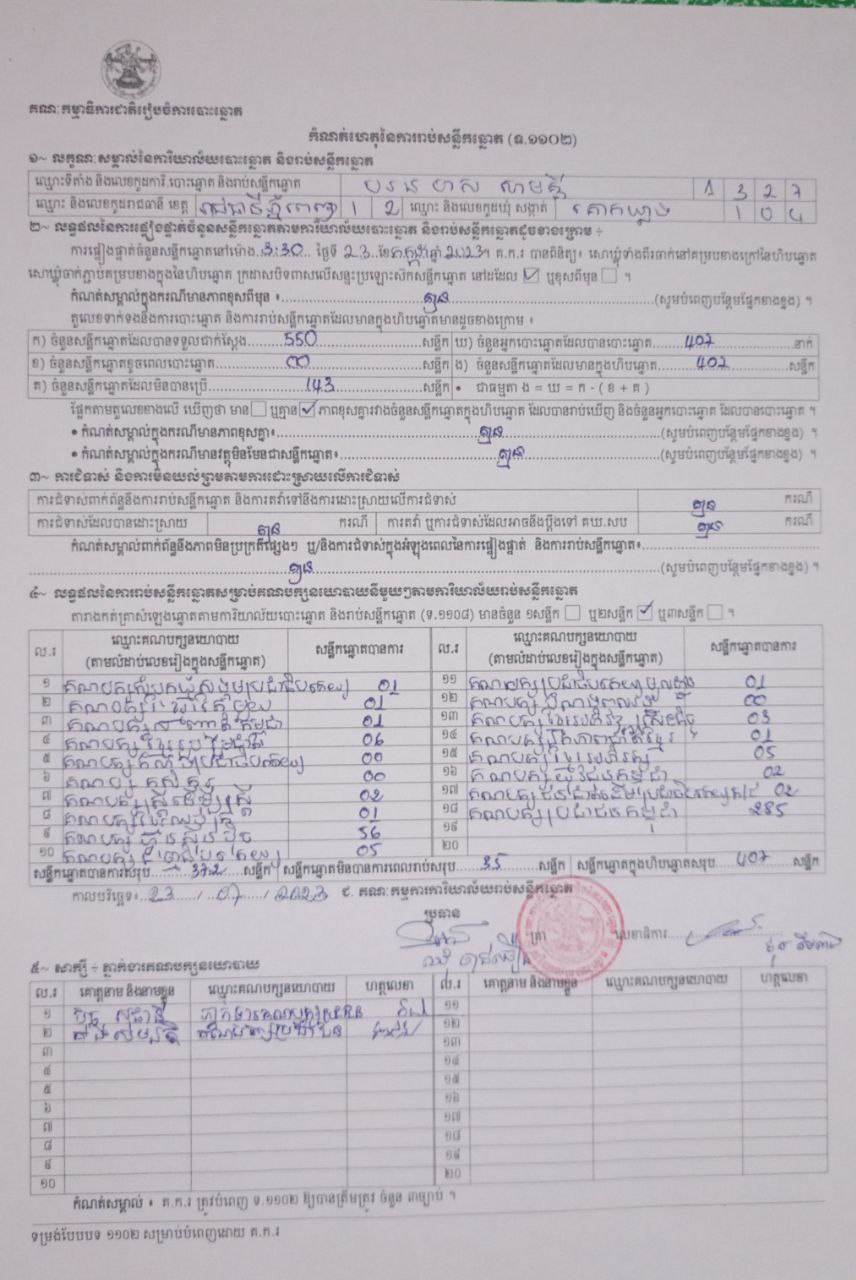 គណៈកម្មាធិការជាតិរៀបចំការបោះឆ្នោត
កំណត់ហេតុនៃការរាប់សន្លឹកឆ្នោត (ទ.១១០២)
១~ លក្ខណៈសម្គាល់នៃការិយាល័យបោះឆ្នោត និងរាប់សន្លឹកឆ្នោត
ឈ្មោះទីតាំង និងលេខកូដការិ.បោះឆ្នោត និងរាប់សន្លឹកឆ្នោត 1 3 2 7
ឈ្មោះ និងលេខកូដរាជធានី ខេត្ត រាជធានីភ្នំពេញ 1 2 ឈ្មោះ និងលេខកូដឃុំ សង្កាត់ គោកឃ្លាង 1 0 4
២~ លទ្ធផលនៃការផ្ទៀងផ្ទាត់ចំនួនសន្លឹកឆ្នោតតាមការិយាល័យបោះឆ្នោត និងរាប់សន្លឹកឆ្នោតដូចខាងក្រោម ÷
ការផ្ទៀងផ្ទាត់ចំនួនសន្លឹកឆ្នោតនៅម៉ោង 3:30 ថ្ងៃទី 23 ខែ កក្កដា ឆ្នាំ 2023។ គ.ក.រ បានពិនិត្យ៖ សោឃ្មុំទាំងពីរចាក់នៅគម្របខាងក្រៅនៃហិបឆ្នោត
សោឃ្មុំចាក់ភ្ជាប់គម្របខាងក្នុងនៃហិបឆ្នោត ក្រដាសបិទពាសលើសន្ទះប្រឡោះស៊កសន្លឹកឆ្នោត នៅដដែល ☑ ឬខុសពីមុន ☐ ។
កំណត់សម្គាល់ក្នុងករណីមានភាពខុសពីមុន ៖ គ្មាន (សូមបំពេញបន្ថែមផ្នែកខាងខ្នង) ។
តួលេខទាក់ទងនឹងការបោះឆ្នោត និងការរាប់សន្លឹកឆ្នោតដែលមានក្នុងហិបឆ្នោតមានដូចខាងក្រោម ៖
ក) ចំនួនសន្លឹកឆ្នោតដែលបានទទួលជាក់ស្តែង 550 សន្លឹក ឃ) ចំនួនអ្នកបោះឆ្នោតដែលបានបោះឆ្នោត 407 នាក់
ខ) ចំនួនសន្លឹកឆ្នោតខូចពេលបោះឆ្នោត 00 សន្លឹក ង) ចំនួនសន្លឹកឆ្នោតដែលមានក្នុងហិបឆ្នោត 407 សន្លឹក
គ) ចំនួនសន្លឹកឆ្នោតដែលមិនបានប្រើ 143 សន្លឹក • ជាធម្មតា ង = ឃ = ក - ( ខ + គ )
ផ្អែកតាមតួលេខខាងលើ ឃើញថា មាន ☐ ឬគ្មាន ☑ ភាពខុសគ្នារវាងចំនួនសន្លឹកឆ្នោតក្នុងហិបឆ្នោត ដែលបានរាប់ឃើញ និងចំនួនអ្នកបោះឆ្នោត ដែលបានបោះឆ្នោត ។
• កំណត់សម្គាល់ក្នុងករណីមានភាពខុសគ្នា៖ គ្មាន (សូមបំពេញបន្ថែមផ្នែកខាងខ្នង) ។
• កំណត់សម្គាល់ក្នុងករណីមានវត្ថុមិនមែនជាសន្លឹកឆ្នោត៖ គ្មាន (សូមបំពេញបន្ថែមផ្នែកខាងខ្នង) ។
៣~ ការជំទាស់ និងការមិនយល់ព្រមតាមការដោះស្រាយលើការជំទាស់
ការជំទាស់ពាក់ព័ន្ធនឹងការរាប់សន្លឹកឆ្នោត និងការតវ៉ាទៅនឹងការដោះស្រាយលើការជំទាស់ គ្មាន ករណី
ការជំទាស់ដែលបានដោះស្រាយ គ្មាន ករណី ការតវ៉ា ឬការជំទាស់ដែលអាចនឹងប្តឹងទៅ គឃ.សប គ្មាន ករណី
កំណត់សម្គាល់ពាក់ព័ន្ធនឹងភាពមិនប្រក្រតីផ្សេងៗ ឬ/និងការជំទាស់ក្នុងអំឡុងពេលនៃការផ្ទៀងផ្ទាត់ និងការរាប់សន្លឹកឆ្នោត៖
គ្មាន (សូមបំពេញបន្ថែមផ្នែកខាងខ្នង) ។
៤~ លទ្ធផលនៃការរាប់សន្លឹកឆ្នោតសម្រាប់គណបក្សនយោបាយនីមួយៗតាមការិយាល័យរាប់សន្លឹកឆ្នោត
តារាងកត់ត្រាសំឡេងឆ្នោតតាមការិយាល័យបោះឆ្នោត និងរាប់សន្លឹកឆ្នោត (ទ.១១០៨) មានចំនួន ១សន្លឹក ☐ ឬ២សន្លឹក ☑ ឬ៣សន្លឹក ☐ ។
ល.រ ឈ្មោះគណបក្សនយោបាយ (តាមលំដាប់លេខរៀងក្នុងសន្លឹកឆ្នោត) សន្លឹកឆ្នោតបានការ ល.រ ឈ្មោះគណបក្សនយោបាយ (តាមលំដាប់លេខរៀងក្នុងសន្លឹកឆ្នោត) សន្លឹកឆ្នោតបានការ
១ គណបក្ស 01
២ គណបក្ស 01
៣ គណបក្ស 01
៤ គណបក្ស 06
៥ គណបក្ស 00
៦ គណបក្ស 00
៧ គណបក្ស 02
៨ គណបក្ស 01
៩ គណបក្សហ៊្វុនស៊ិនប៉ិច 56
១០ គណបក្ស 05
១១ គណបក្សប្រជាធិបតេយ្យមូលដ្ឋាន 01
១២ គណបក្ស 00
១៣ គណបក្ស 03
១៤ គណបក្ស 01
១៥ គណបក្ស 05
១៦ គណបក្សយុវជនកម្ពុជា 02
១៧ គណបក្ស 02
១៨ គណបក្សប្រជាជនកម្ពុជា 285
១៩
២០
សន្លឹកឆ្នោតបានការសរុប 372 សន្លឹក សន្លឹកឆ្នោតមិនបានការពេលរាប់សរុប 35 សន្លឹក សន្លឹកឆ្នោតក្នុងហិបឆ្នោតសរុប 407 សន្លឹក
កាលបរិច្ឆេទ៖ 23 / 07 / 2023 ជ. គណៈកម្មការការិយាល័យរាប់សន្លឹកឆ្នោត
ប្រធាន
ត្រា លេខាធិការ
៥~ សាក្សី ÷ ភ្នាក់ងារគណបក្សនយោបាយ
ល.រ គោត្តនាម និងនាមខ្លួន ឈ្មោះគណបក្សនយោបាយ ហត្ថលេខា ល.រ គោត្តនាម និងនាមខ្លួន ឈ្មោះគណបក្សនយោបាយ ហត្ថលេខា
១ ១១
២ ១២
៣ ១៣
៤ ១៤
៥ ១៥
៦ ១៦
៧ ១៧
៨ ១៨
៩ ១៩
១០ ២០
កំណត់សម្គាល់ ៖ គ.ក.រ ត្រូវបំពេញ ទ.១១០២ ឱ្យបានត្រឹមត្រូវ ចំនួន ៣ច្បាប់ ។
ទម្រង់បែបបទ ១១០២ សម្រាប់បំពេញដោយ គ.ក.រ